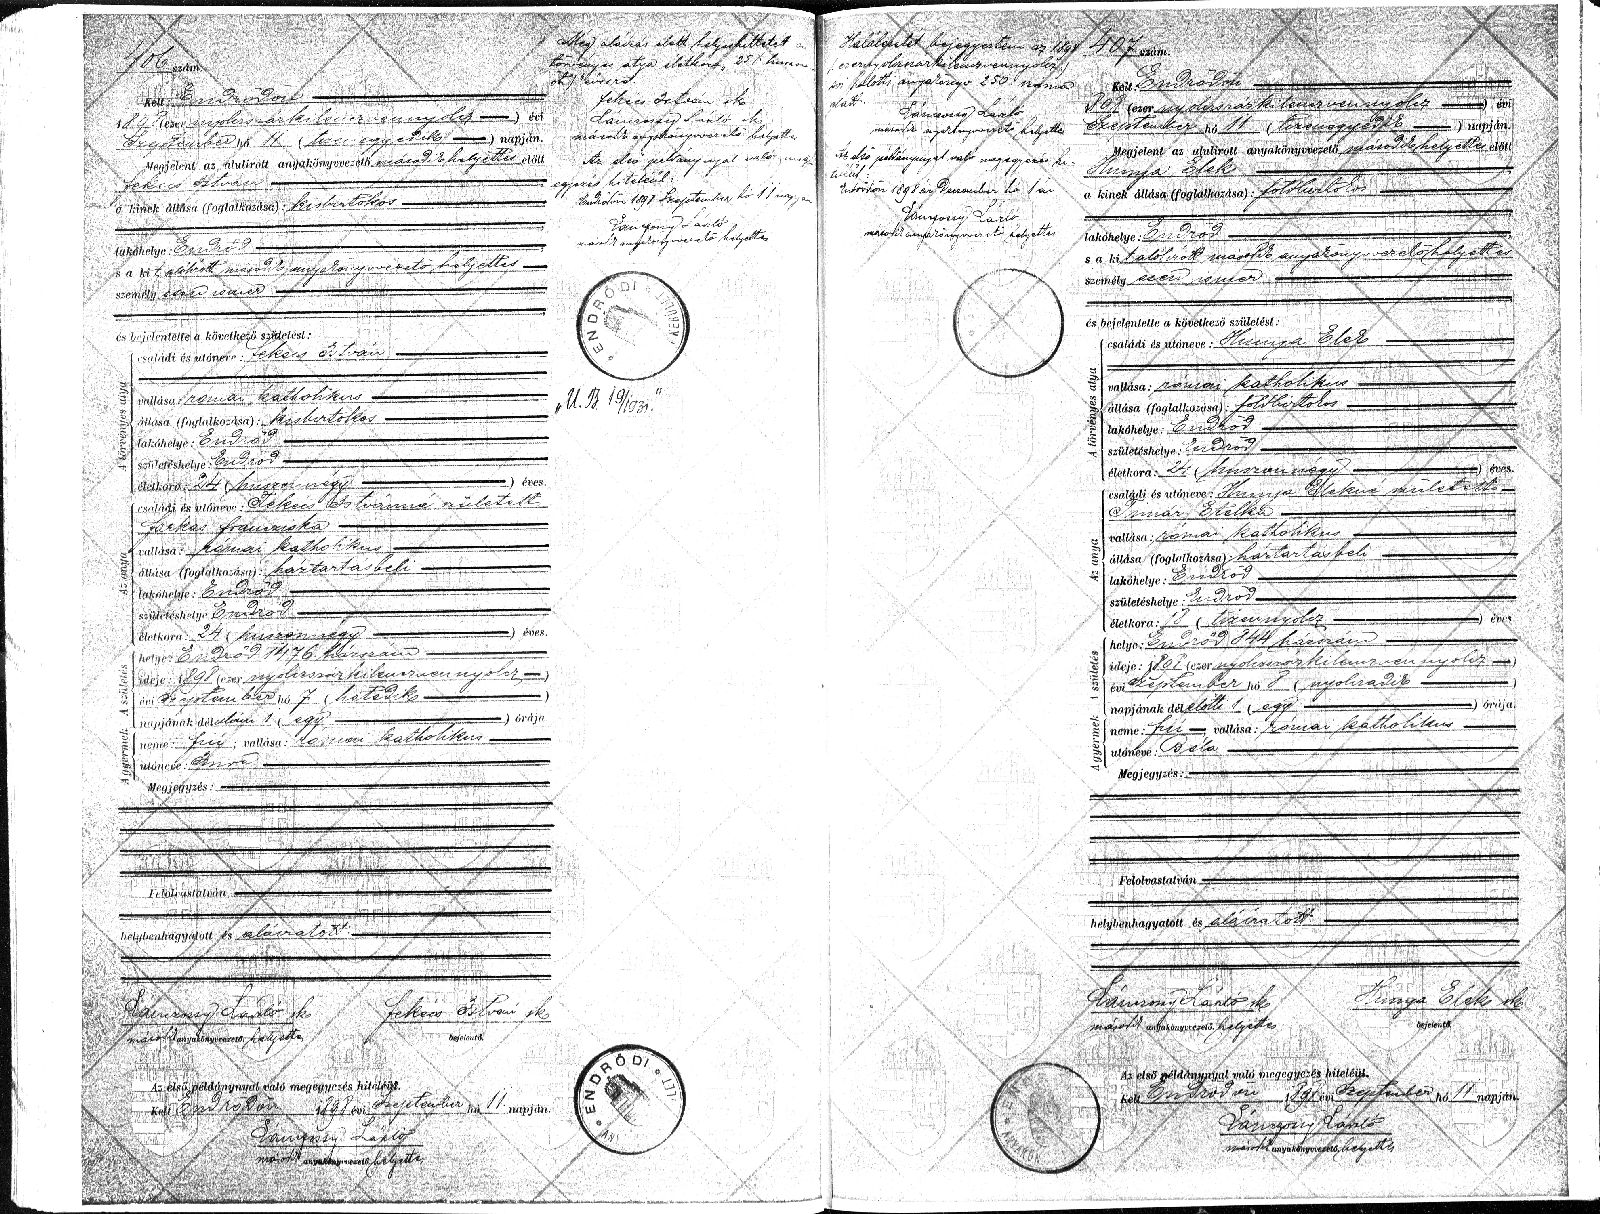 406 szám.
Kelt Endrődön
1898 (ezer nyolcszázkilencvennyolcz) évi
szeptember hó 11 (tizenegyedik) napján.
Megjelent az alulirott anyakönyvvezető másodk helyettes előtt
Fekécs István
a kinek állása (foglalkozása): kisbirtokos
lakóhelye: Endrőd
s a kit alólirott másodk anyakönyvvezető helyettes
személy
és bejelentette a következő születést:
A törvényes atya
családi és utóneve: Fekécs István
vallása: római katholikus
állása (foglalkozása): kisbirtokos
lakóhelye: Endrőd
születéshelye: Endrőd
életkora: 24 (huszonnégy) éves.
Az anya
családi és utóneve: Fekécs Istvánné született
Farkas Franciska
vallása: római katholikus
állása (foglalkozása): háztartásbeli
lakóhelye: Endrőd
születéshelye Endrőd
életkora: 24 (huszonnégy) éves.
A születés
helye: Endrőd 1176 házszám
ideje: 1898 (ezer nyolcszázkilencvennyolcz)
évi szeptember hó 7 (hetedik)
napjának délutáni 1 (egy) órája
A gyermek
neme: fiú; vallása: római katholikus
utóneve: Imre
Megjegyzés:
Felolvastatván
helybenhagyatott és aláiratott.
Lánczosy László sk
másodk anyakönyvvezető helyettes
Fekécs István sk
bejelentő.
Az első példánynyal való megegyezés hiteléül.
Kelt Endrődön 1898 évi szeptember hó 11 napján.
Lánczosy László
másodk anyakönyvvezető helyettes
Fekécs István sk
Lánczosy László sk
másodk anyakönyvvezető helyettes
Az első példánynyal való meg-
egyezés hiteléül.
Endrődön 1898 szeptember hó 11 napján
Lánczosy László
másodk anyakönyvvezető helyettes
ENDRŐDI
„U. B. 19/1931."
ENDRŐDI
Halálesetet bejegyeztem az 1898
250
alatt.
Lánczosy László
másodk anyakönyvvezető helyettes
Az első példánynyal való megegyezés hi-
teléül.
Endrődön 1898 év December hó 1 én
Lánczosy László
másodk anyakönyvvezető helyettes
407 szám.
Kelt Endrődön
1898 (ezer nyolcszázkilencvennyolcz) évi
szeptember hó 11 (tizenegyedik) napján.
Megjelent az alulirott anyakönyvvezető másodk helyettes előtt
Hunya Elek
a kinek állása (foglalkozása): földbirtokos
lakóhelye: Endrőd
s a kit alólirott másodk anyakönyvvezető helyettes
személy
és bejelentette a következő születést:
A törvényes atya
családi és utóneve: Hunya Elek
vallása: római katholikus
állása (foglalkozása): földbirtokos
lakóhelye: Endrőd
születéshelye: Endrőd
életkora: 24 (huszonnégy) éves.
Az anya
családi és utóneve: Hunya Elekné született
Tímár Etelka
vallása: római katholikus
állása (foglalkozása): háztartásbeli
lakóhelye: Endrőd
születéshelye: Endrőd
életkora: 18 (tizennyolcz) éves
A születés
helye: Endrőd 844 házszám
ideje: 1898 (ezer nyolcszázkilencvennyolcz)
évi szeptember hó 8 (nyolczadik)
napjának délelőtti 1 (egy) órája.
A gyermek
neme: fiú; vallása: római katholikus
utóneve: Béla
Megjegyzés:
Felolvastatván
helybenhagyatott és aláiratott
Lánczosy László sk
másodk anyakönyvvezető. helyettes
Hunya Elek sk
bejelentő.
Az első példánynyal való megegyezés hiteléül.
Kelt Endrődön 1898 évi szeptember hó 11 napján.
Lánczosy László
másodk anyakönyvvezető helyettes